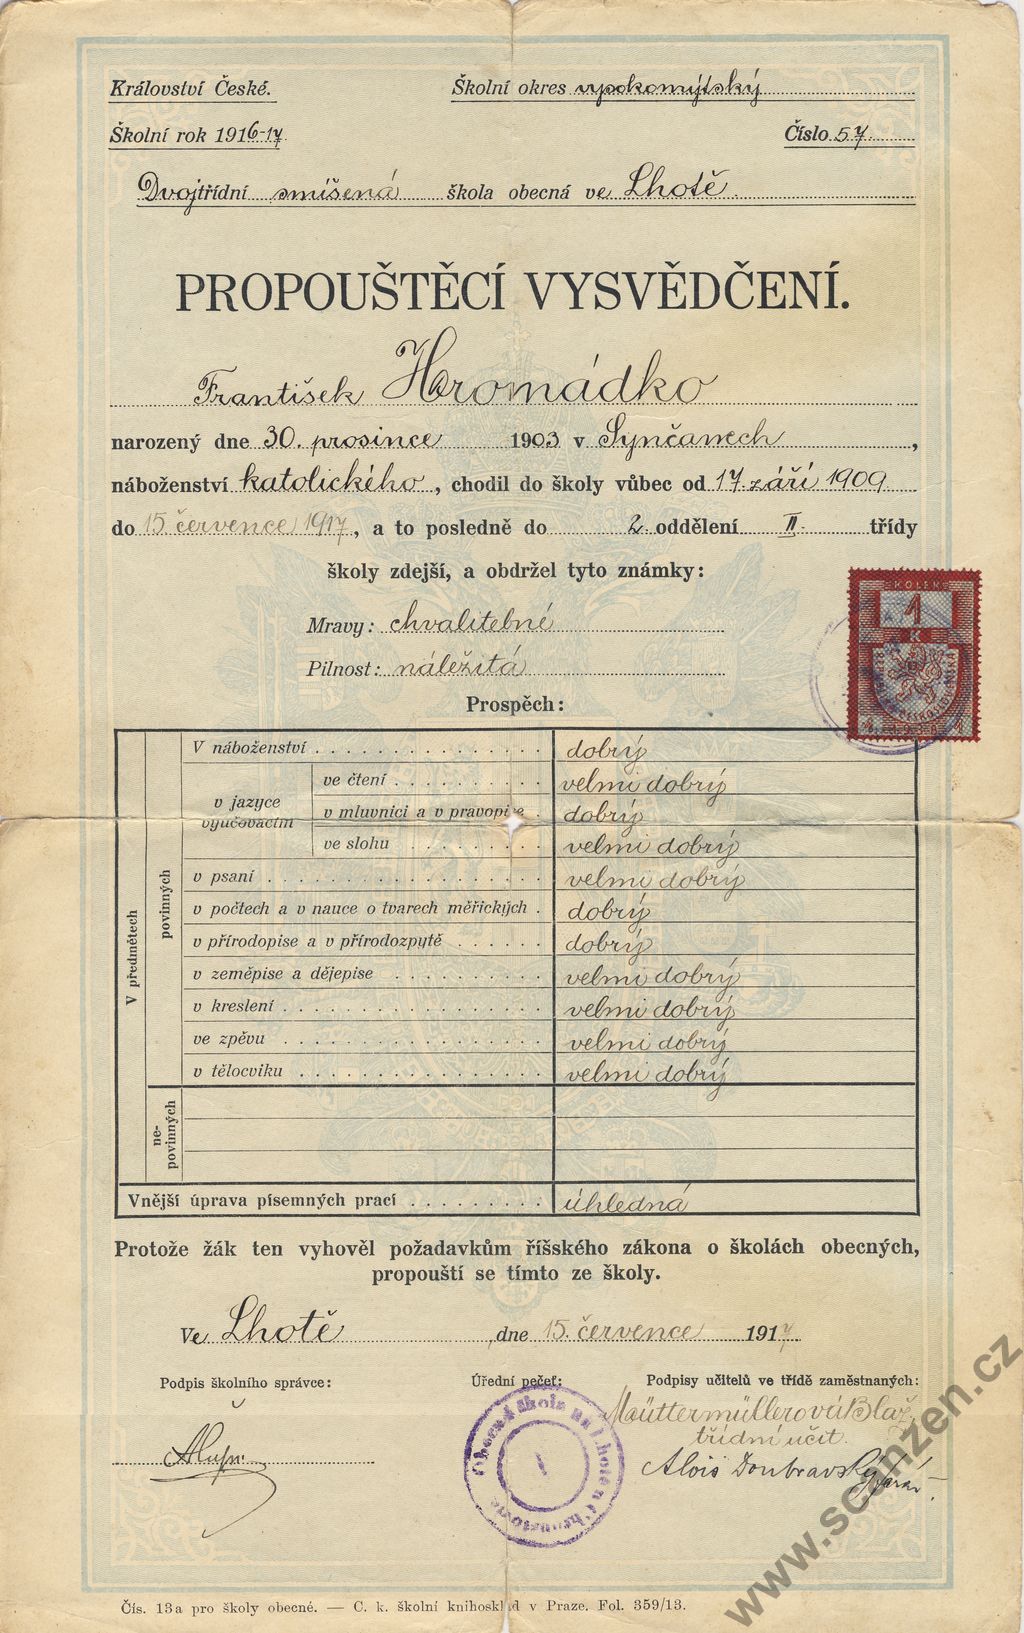 Království České.
Školní okres vysokomýtský
Školní rok 1916-17
Číslo 57.
Dvojtřídní smíšená škola obecná ve Lhotě.
PROPOUŠTĚCÍ VYSVĚDČENÍ.
František Hromádko
narozený dne 30. prosince 1903 v Synčanech,
náboženství katolického, chodil do školy vůbec od 17. září 1909
do 15. července 1917, a to posledně do 2. oddělení II. třídy
školy zdejší, a obdržel tyto známky:
Mravy: chvalitebné
Pilnost: náležitá
KOLEK
1
K
Prospěch:
V předmětech
povinných
V náboženství dobrý
v jazyce vyučovacím
ve čtení velmi dobrý
v mluvnici a v pravopise dobrý
ve slohu velmi dobrý
v psaní velmi dobrý
v počtech a v nauce o tvarech měřických dobrý
v přírodopise a v přírodozpytě dobrý
v zeměpise a dějepise velmi dobrý
v kreslení velmi dobrý
ve zpěvu velmi dobrý
v tělocviku velmi dobrý
ne-
povinných
Vnější úprava písemných prací úhledná
Protože žák ten vyhověl požadavkům říšského zákona o školách obecných,
propouští se tímto ze školy.
Ve Lhotě, dne 15. července 1917
Podpis školního správce:
Úřední pečeť:
Podpisy učitelů ve třídě zaměstnaných:
Maüttermüllerová Blaž.
třídní učit.
Alois Doubravský farář.
Obecná škola
Čís. 13a pro školy obecné. — C. k. školní knihosklad v Praze. Fol. 359/13.
www.scanzen.cz